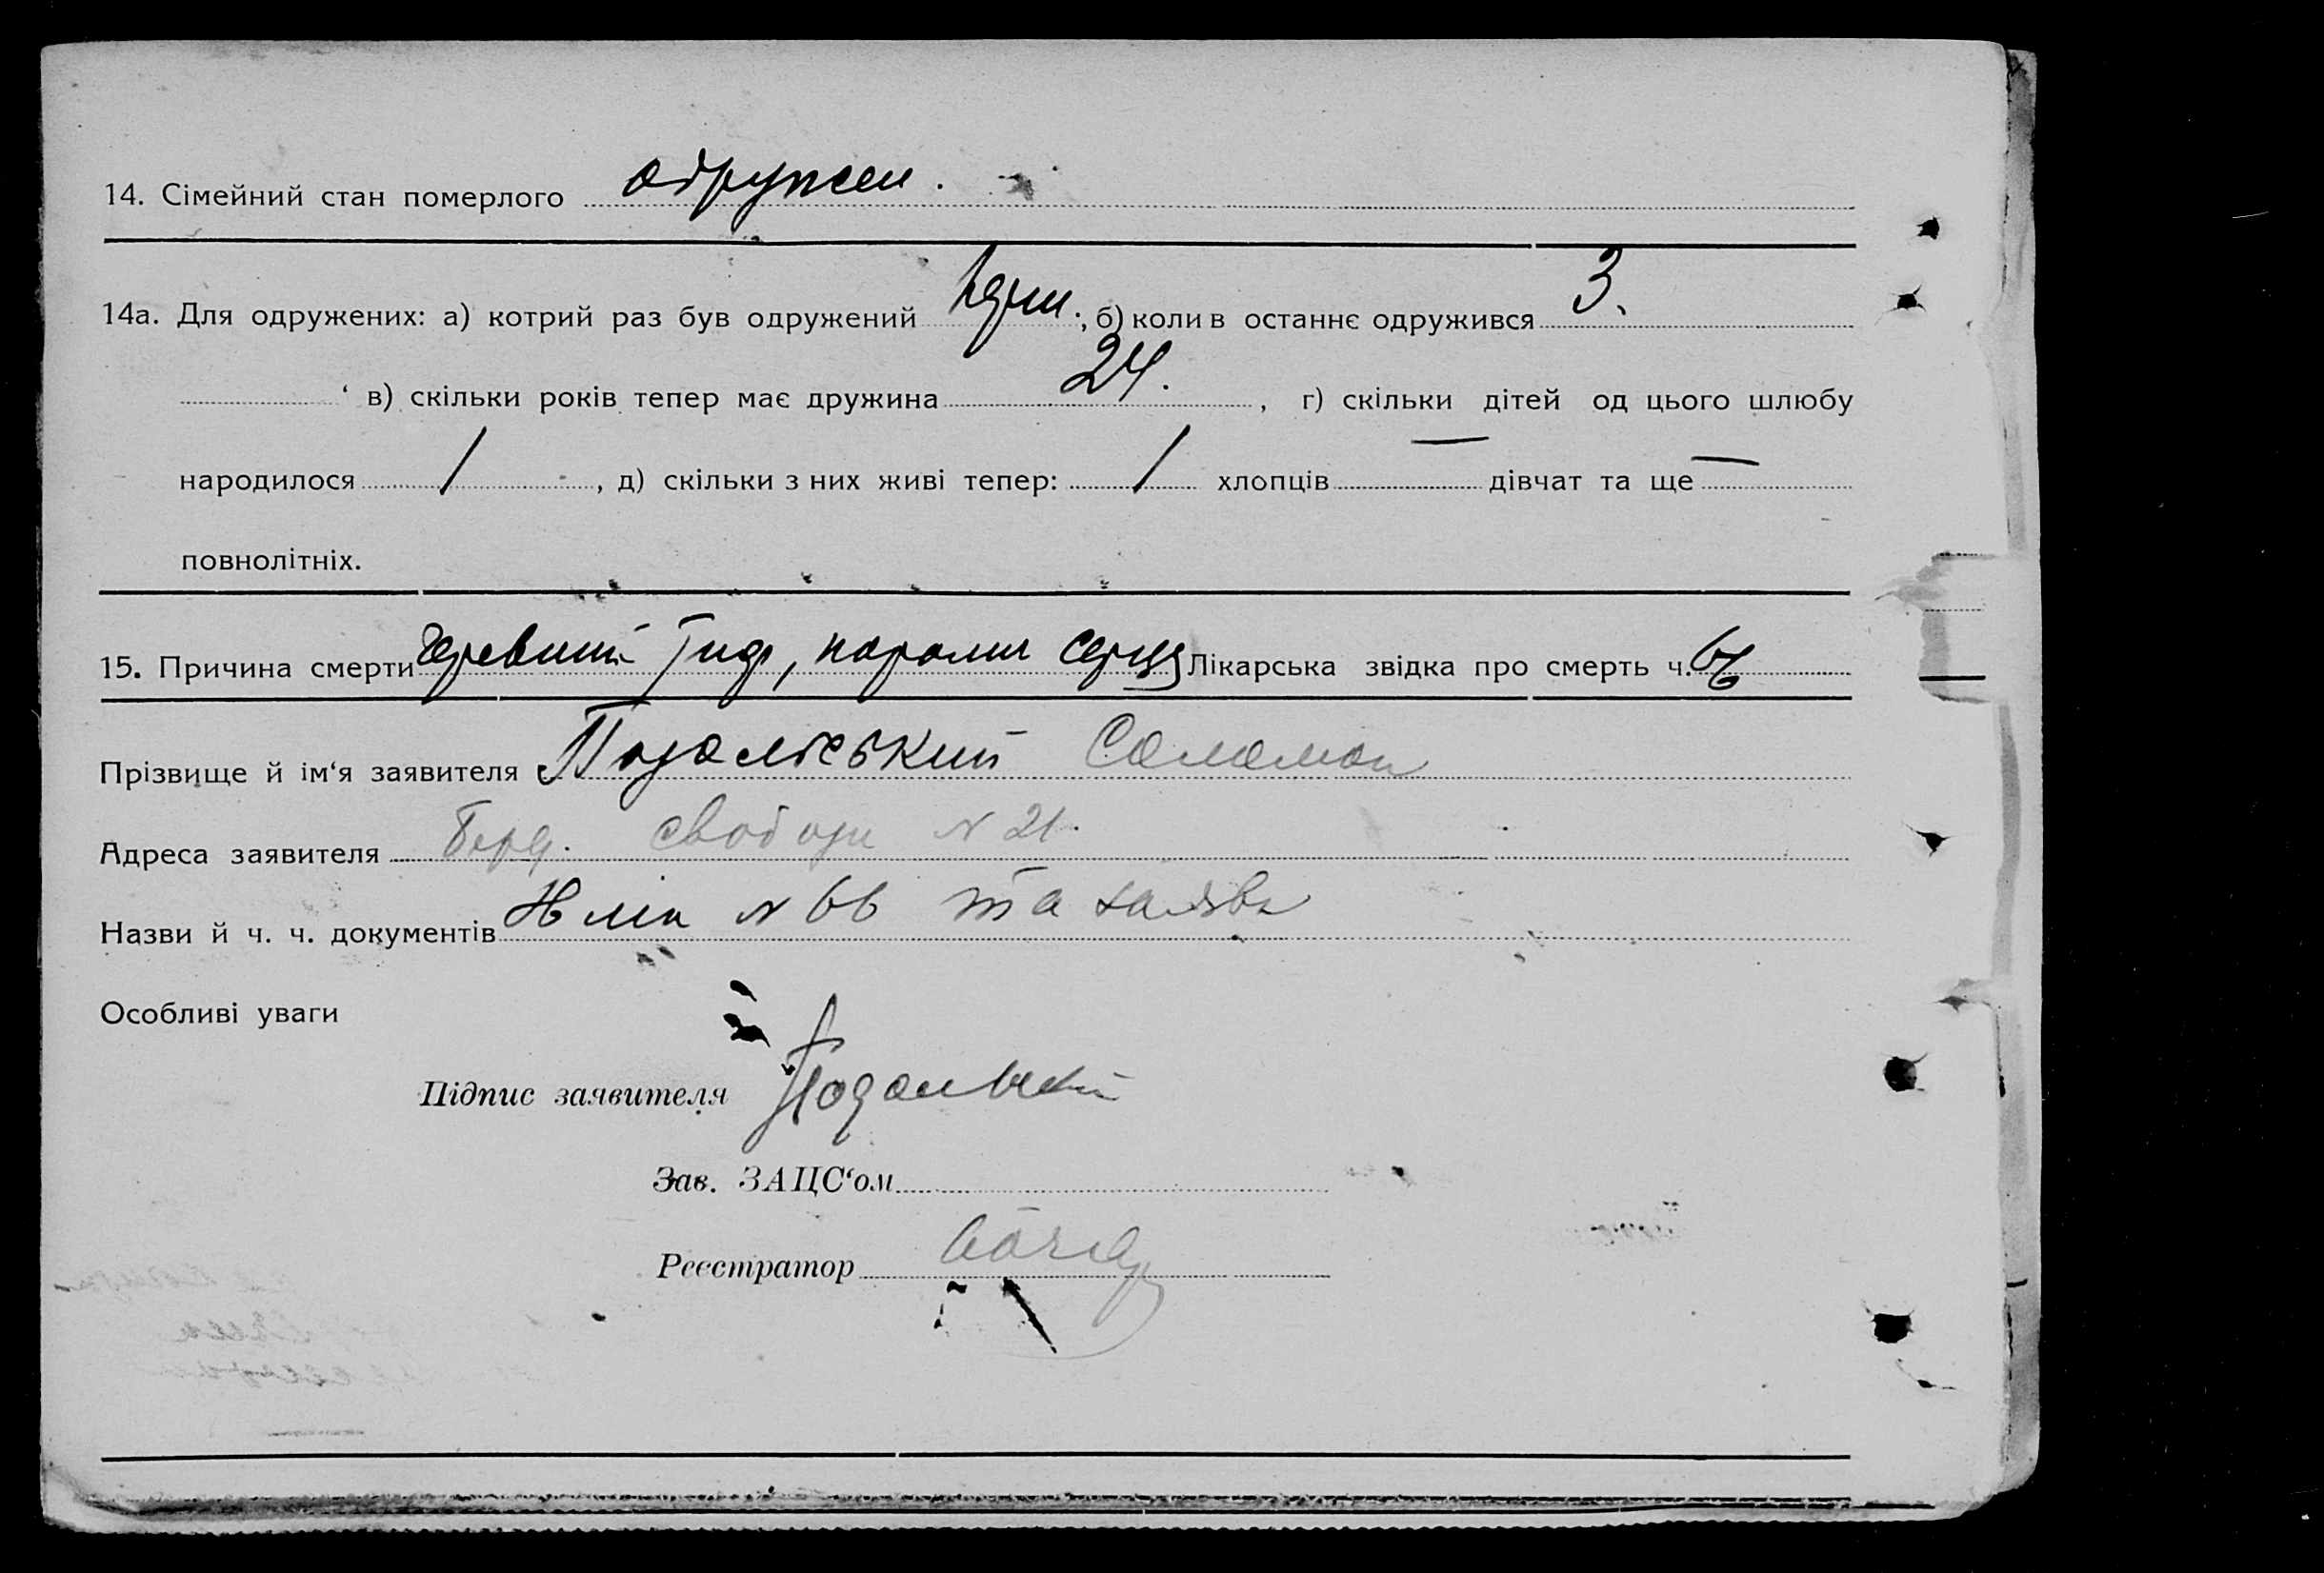 14. Сімейний стан померлого одружен.
14а. Для одружених: а) котрий раз був одружений, б) коли в останнє одружився 3.
‘ в) скільки років тепер має дружина 24. , г) скільки дітей од цього шлюбу
народилося 1 , д) скільки з них живі тепер: 1 хлопців — дівчат та ще —
повнолітніх.
15. Причина смерти Черевний Тиф, параліч серця Лікарська звідка про смерть ч. 66
Прізвище й ім‘я заявителя Подольський Соломон
Адреса заявителя Берд. свободи N 21.
Назви й ч. ч. документів N 66 та заява
Особливі уваги
Підпис заявителя Подольский
Зав. ЗАЦС‘ом
Реєстратор